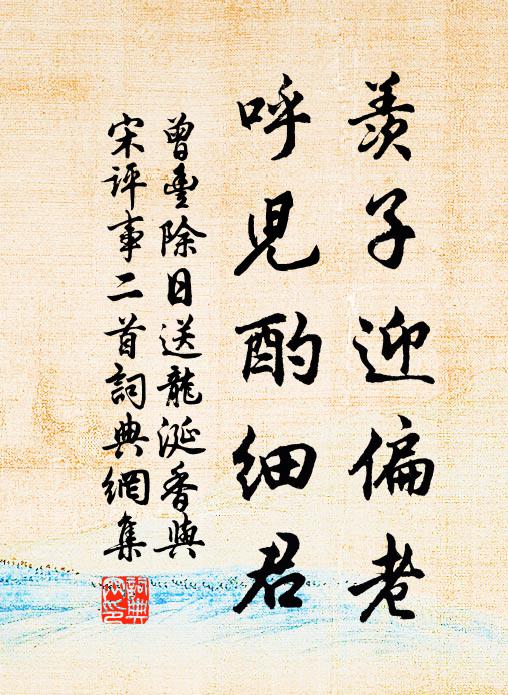 羨子迎偏老
呼児酌細君
曾豐除日送龍涎香與
宋評事二首詞典網集